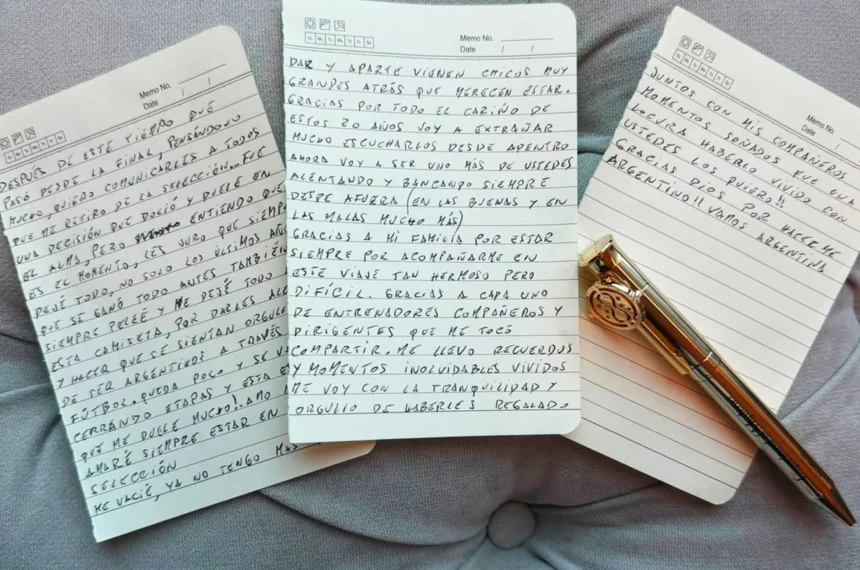 Memo No.
Date / /
DESPUÉS DE ESTE TIEMPO QUE
PASÓ DESDE LA FINAL, PENSÁNDOLO
MUCHO, QUIERO COMUNICARLES A TODOS
QUE ME RETIRO DE LA SELECCIÓN.. FUE
UNA DECISIÓN QUE DOLIÓ Y DUELE EN
EL ALMA, PERO ENTIENDO QUE
ES EL MOMENTO, LES JURO QUE SIEMP
DEJÉ TODO, NO SOLO LOS ÚLTIMOS AÑOS
QUE SE GANÓ TODO ANTES TAMBIÉN
SIEMPRE PELEÉ Y ME DEJÉ TODO
ESTA CAMISETA, POR DARLES ALE
Y HACER QUE SE SIENTAN ORGULL
DE SER ARGENTINOS A TRAVÉS
FÚTBOL. QUEDA POCO Y SE VA
CERRANDO ETAPAS Y ESTA ES
QUE ME DUELE MUCHO!. AMO
AMARÉ SIEMPRE ESTAR EN
SELECCIÓN
ME VACIÉ, YA NO TENGO MÁS
Memo No.
Date / /
DAR Y APARTE VIENEN CHICOS MUY
GRANDES ATRÁS QUE MERECEN ESTAR.
GRACIAS POR TODO EL CARIÑO DE
ESTOS 20 AÑOS VOY A EXTRAÑAR
MUCHO ESCUCHARLOS DESDE ADENTRO
AHORA VOY A SER UNO MÁS DE USTEDES
ALENTANDO Y BANCANDO SIEMPRE
DESDE AFUERA (EN LAS BUENAS Y EN
LAS MALAS MUCHO MÁS)
GRACIAS A MI FAMILIA POR ESTAR
SIEMPRE POR ACOMPAÑARME EN
ESTE VIAJE TAN HERMOSO PERO
DIFÍCIL. GRACIAS A CADA UNO
DE ENTRENADORES COMPAÑEROS Y
DIRIGENTES QUE ME TOCÓ
COMPARTIR. ME LLEVO RECUERDOS
Y MOMENTOS INOLVIDABLES VIVIDOS
ME VOY CON LA TRANQUILIDAD Y
ORGULLO DE HABERLES REGALADO
Memo No.
Date / /
JUNTOS CON MIS COMPAÑEROS
MOMENTOS SOÑADOS FUE UNA
LOCURA HABERLO VIVIDO CON
USTEDES LOS QUIERO!!
GRACIAS DIOS POR HACERME
ARGENTINO!! VAMOS ARGENTINA